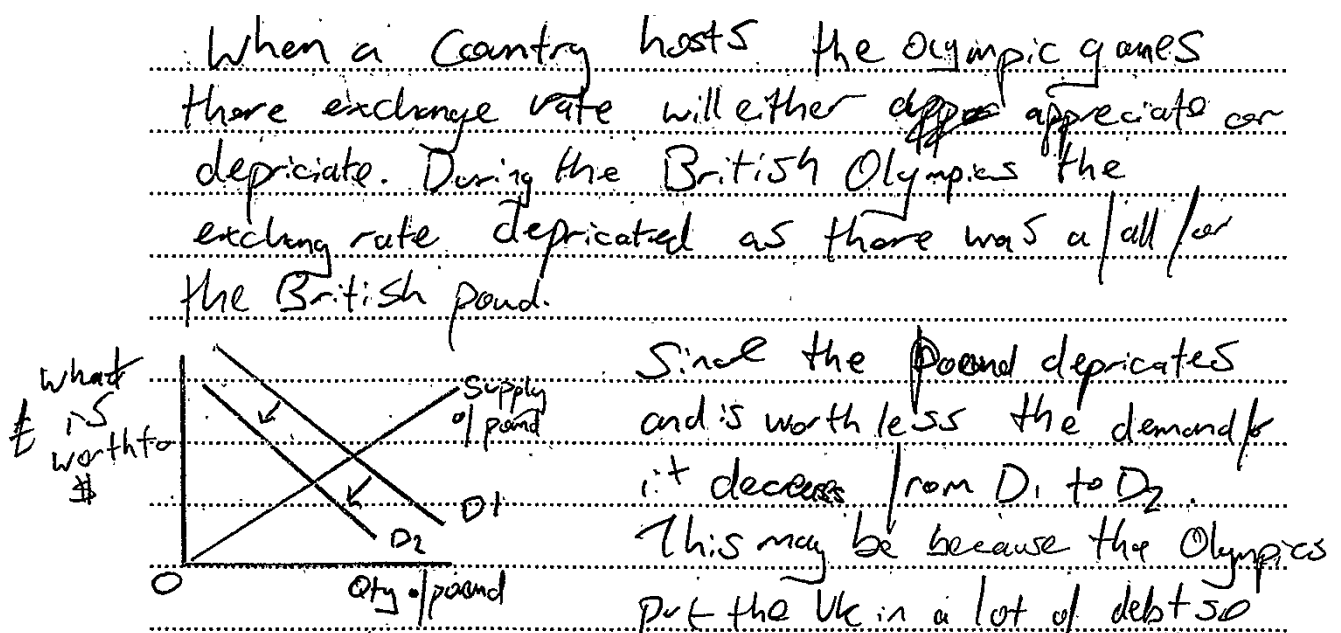 When a Country hosts the Olympic games
there exchange rate will either appreciate or
depriciate. During the British Olympics the
exchang rate depricated as there was a fall for
the British pound.
what
£ is
worth to
$
Supply
of pound
D1
D2
O
Qty of pound
Since the pound depricates
and is worth less the demand for
it decreases from D1 to D2.
This may be because the Olympics
put the UK in a lot of debt so